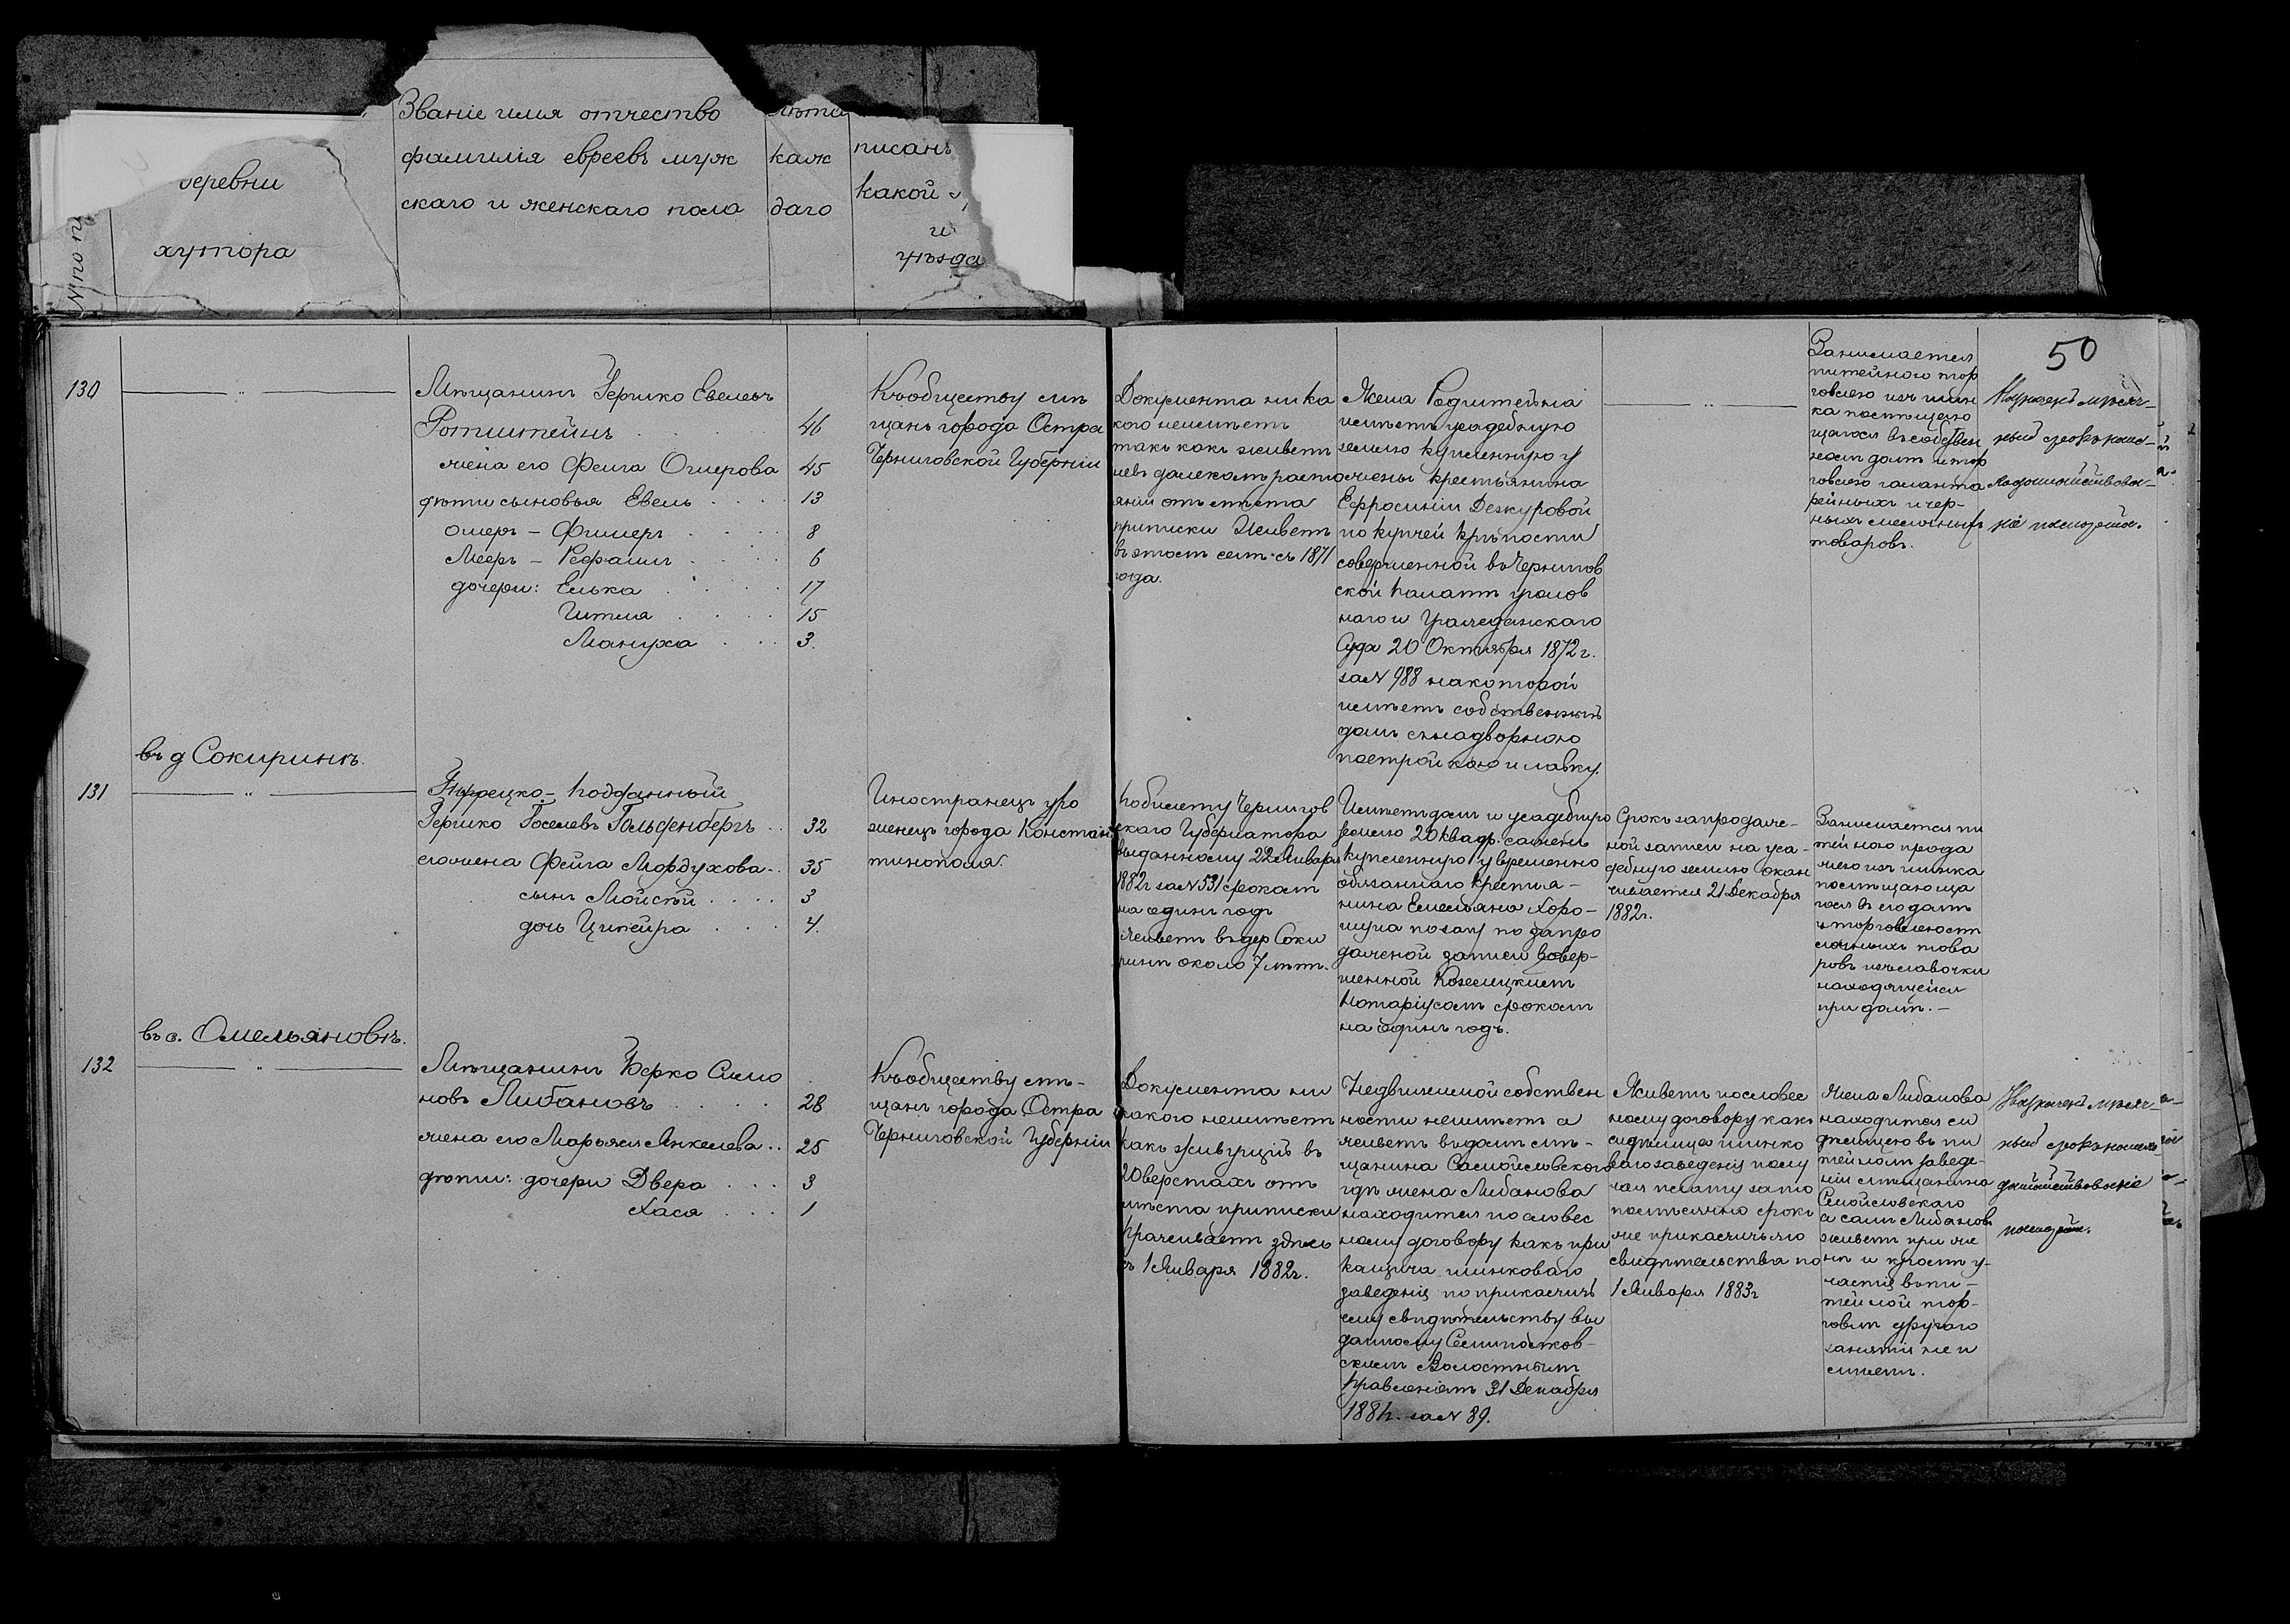 Званіе имя отчество
фамилія евреевъ муж
скаго и женскаго пола
лѣта
каж
даго
писанъ
какой
и
уѣзда
деревни
хутора
№ по п
50
130
Мѣщанинъ Гершко Евелевъ
Ротштейнъ 46
жена его Фейга Ошерова 45
дѣти сыновья Евель 13
Ошеръ – Фишеръ 8
Мееръ – Рефаилъ 6
дочери: Елька 17
Гитля 15
Мануха 3.
Къ обществу мѣ
щанъ города Остра
Черниговской Губерніи
Документа ника
кого неимѣетъ
такъ какъ живетъ
невъ далекомъ расто
яніи отъ мѣста
приписки Живетъ
въ этомъ селѣ съ 1871
года.
имѣетъ усадебную
землю купленную у
жены крестьянина
Ефросиніи Дежуровой
по купчей крѣпости
совершенной въ Чернигов
ской Палатѣ уголов
наго и Гражданскаго
Суда 20 Октября 1872 г.
за № 988 на которой
имѣетъ собственный
домъ с надворною
постройкою и лавку.
Занимается
питейною тор
говлею изъ шин
ка помѣщаю
щагося въ собствен
номъ домѣ и тор
говлею галанте
рейныхъ и чер-
ныхъ мелочныхъ
товаровъ.
въ д Сокиринѣ.
131
Турецко-Подданный
Гершко Іоселевъ Гольденбергъ 32
его жена Фейга Мордухова 35
сынъ Мойсѣй 3
дочь Ципейра 4.
Иностранецъ уро
женецъ города Констан
тинополя.
По билету Чернигов
скаго Губернатора
выданному 22 Января
1882 г за № 531 срокомъ
на одинъ годъ
Живетъ въ дер Соки
ринѣ около 7 лѣтъ.
Имѣетъ домъ и усадебную
землю 20 квадр. саженъ
купленную у временно
обязаннаго крестья-
нина Емельяна Хоро-
по запро
дажной записи совер-
шенной Козелецкимъ
Нотаріусомъ срокомъ
на одинъ годъ.
Срокъ запродаж-
ной записи на уса-
дебную землю окан
чивается 21 Декабря
1882 г.
Занимается пи
тейною прода
жею изъ шинка
помѣщающа
гося въ его домѣ
и торговлею мѣ
лочныхъ това
ровъ изъ лавочки
находящейся
при домѣ. –
въ с. Омельяновкѣ.
132
Мѣщанинъ Берко Симо
новъ Либановъ 28
жена его Марьяся Янкелева 25
дѣти: дочери Двера 3
Хася 1
Къ обществу мѣ-
щанъ города Остра
Черниговской Губерніи
Документа ни
какого неимѣетъ
какъ живущій въ
20 верстахъ отъ
мѣста приписки
Проживаетъ здѣсь
съ 1 Января 1882 г.
Недвижимой собствен
ности неимѣетъ а
живетъ въ домѣ мѣ-
щанина Самойловскаго
гдѣ жена Либанова
находится по словес
ному договору какъ при
кащица шинковаго
заведенія по прикащичь
ему свидѣтельству вы
данному Семиполков-
скимъ Волостнымъ
Правленіемъ 31 Декабря
1881 г. за № 89.
Живетъ по словес
ному договору какъ
сидѣлица шинко
ваго заведенія полу
чая плату за то
помѣсячно срокъ
же прикащичьяго
свидѣтельства по
1 Января 1883 г
Жена Либанова
находится си
дѣлицею въ пи
тейномъ заведе-
ніи мѣщанина
Самойловскаго
а самъ Либановъ
живетъ при же
нѣ и кромѣ у-
частія въ пи-
тейной тор-
говлѣ другаго
занятія не и
мѣетъ.